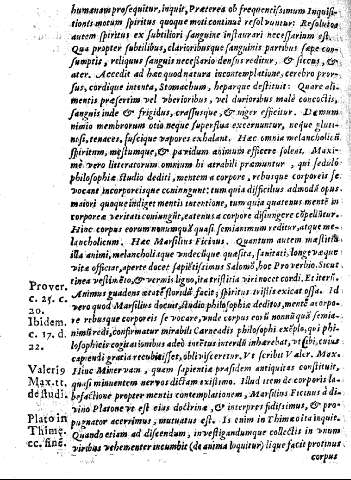 humanam prosequitur, inquit, Præterea ob frequentissimum Inquisi-
tionis motum spiritus quoque moti continuè resoluuntur: Resolutos
autem spiritus ex subtiliori sanguine instaurari necessarium est.
Qua propter subtilibus, clarioribusque sanguinis partibus sæpe con-
sumptis, reliquus sanguis necessario densus reditur, & siccus, &
ater. Accedit ad hæc quod natura in contemplatione, cerebro pror-
sus, cordique intenta, Stomachum, heparque destituit: Quare ali-
mentis præsertim vel vberioribus, vel durioribus malè concoctis,
sanguis inde & frigidus, crassusque, & niger efficitur. Demum
nimio membrorum otio neque superflua excernuntur, neque gluti-
nosi, tenaces, fuscique vapores exhalant. Hæc omnia melancholicũ
spiritum, mæstumque, & pauidum animum efficere solent. Maxi-
mè vero litteratorum omnium hi atrabili præmuntur, qui sedulò
philosophiæ studio dediti, mentem a corpore, rebusque corporeis se
vocant incorporeisque coniungunt: tum quia difficilius admodũ opus
maiori quoque indiget mentis intentione, tum quia quatenus mentē in
corporea veritati coniungũt, eatenus a corpore disiungere cõpellũtur.
Hinc corpus eorum nunnumquā quasi semianimum reditur, atque me-
lancholicum. Hæc Marsilius Ficinus. Quantum autem mæstitia
illa animi, melancholiaque vndecũque quæsita, sanitati, longe vaque
vitæ officiat, aperte docet sapiētissimus Salomõ, hoc Prouerbio. Sicut
tinea vestimēto, & vermis ligno, ita tristitia viri nocet cordi. Et iterũ.
Animus gaudens ætatē floridã facit; spiritus tristis exicat ossa. Id
vero quod Marsilius docet, studio philosophiæ deditos, mentē a corpo-
re rebusque corporeis se vocare, vnde corpus eorũ nonnũquā semia-
nimũ redi, confirmatur mirabili Carneadis philosophi exēplo, qui phi-
losophicis cogitationibus adeò inētus interdũ inhærebat, vt cibi, cuius
capiendi gratia recubuisset, obliuisceretur. Vt scribit Valer. Max.
Hinc Mineruam, quam sapientia præsidem antiquitas constituit,
quasi minuentem neruos dictam existimo. Illud item de corporis la-
befactione propter mentis contemplationem, Marsilius Ficinus à di-
uino Platone vt est eius doctrinæ, & interpres fidissimus, & pro-
pugnator acerrimus, mutuatus est. Is enim in Thimæo ita inquit.
Quando etiam ad discendum, inuestigandumque collectis in vnum
viribus vehementer incumbit (de anima loquitur) lique facit protinus
corpus
Prouer.
c. 25. c.
20.
Ibidem.
c. 17. d.
22.
Valeriꝰ
Max.tt.
de studi.
Plato in
Thimę.
cc. finē.